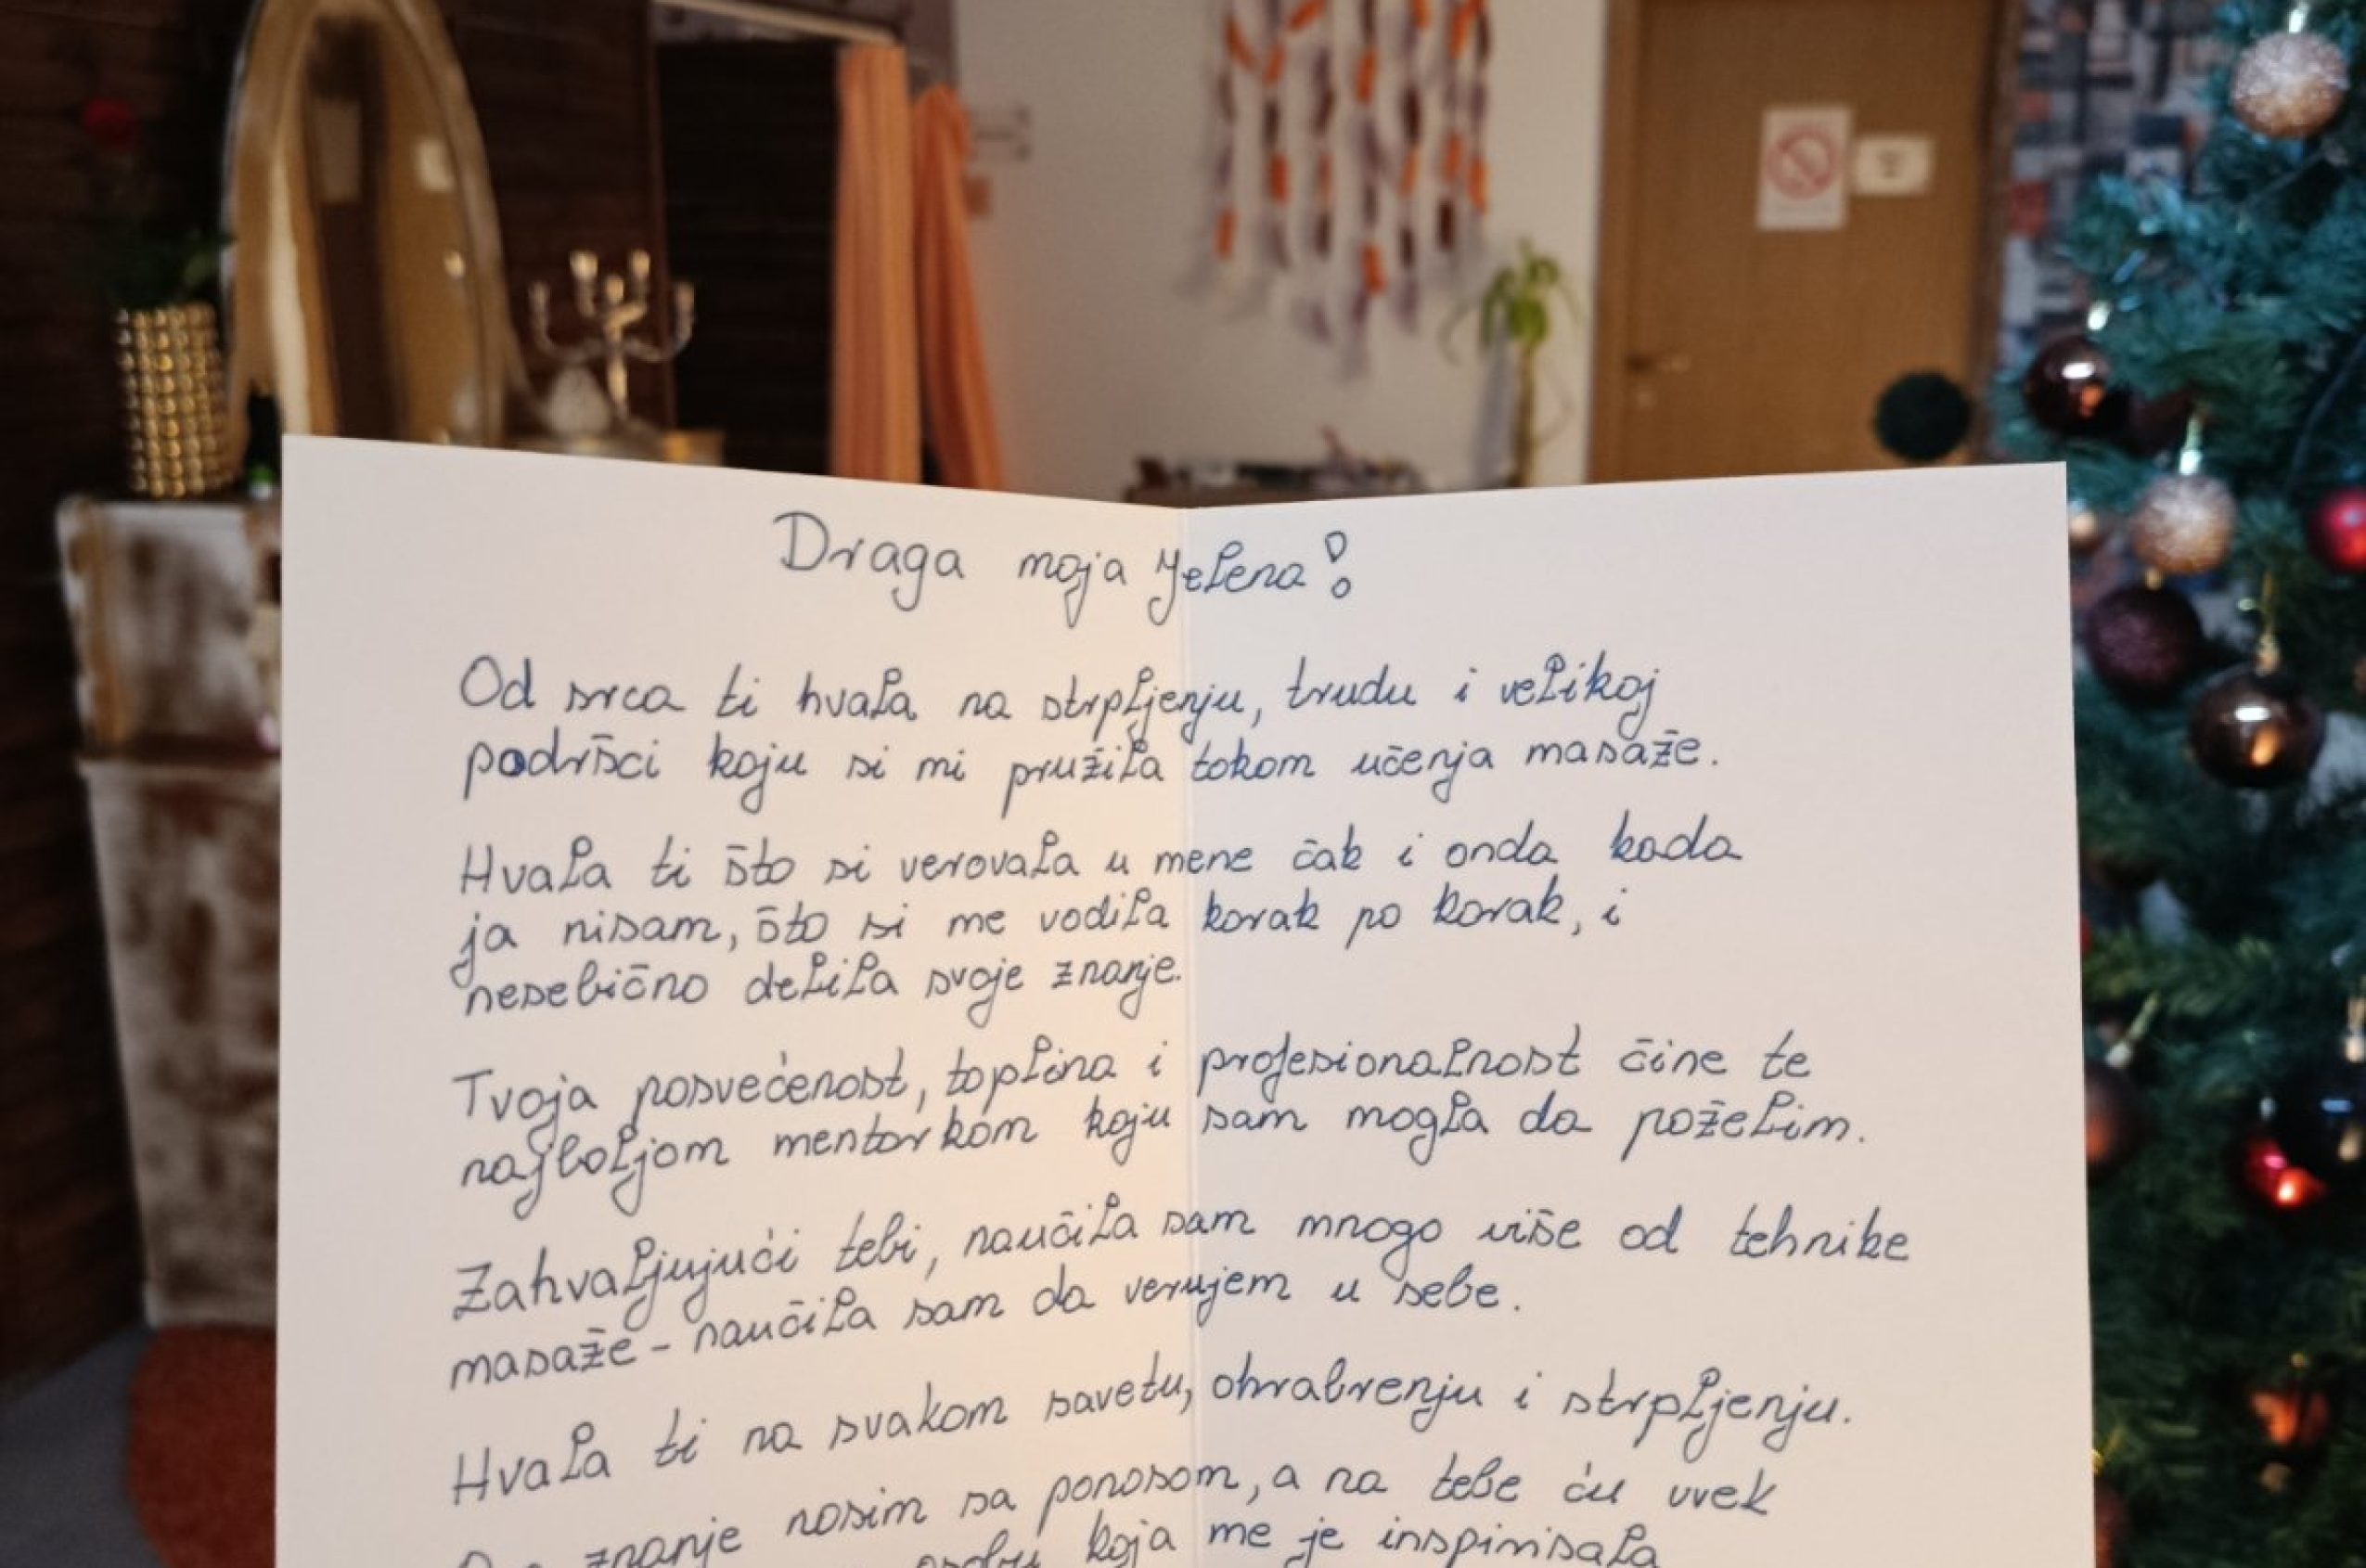 Draga moja Jelena!
Od srca ti hvala na strpljenju, trudu i velikoj
podršci koju si mi pružila tokom učenja masaže.
Hvala ti što si verovala u mene čak i onda kada
ja nisam, što si me vodila korak po korak, i
nesebično delila svoje znanje.
Tvoja posvećenost, toplina i profesionalnost čine te
najboljom mentorkom koju sam mogla da poželim.
Zahvaljujući tebi, naučila sam mnogo više od tehnike
masaže - naučila sam da verujem u sebe.
Hvala ti na svakom savetu, ohrabrenju i strpljenju.
znanje nosim sa ponosom, a na tebe ću uvek
osobu koja me je inspirisala